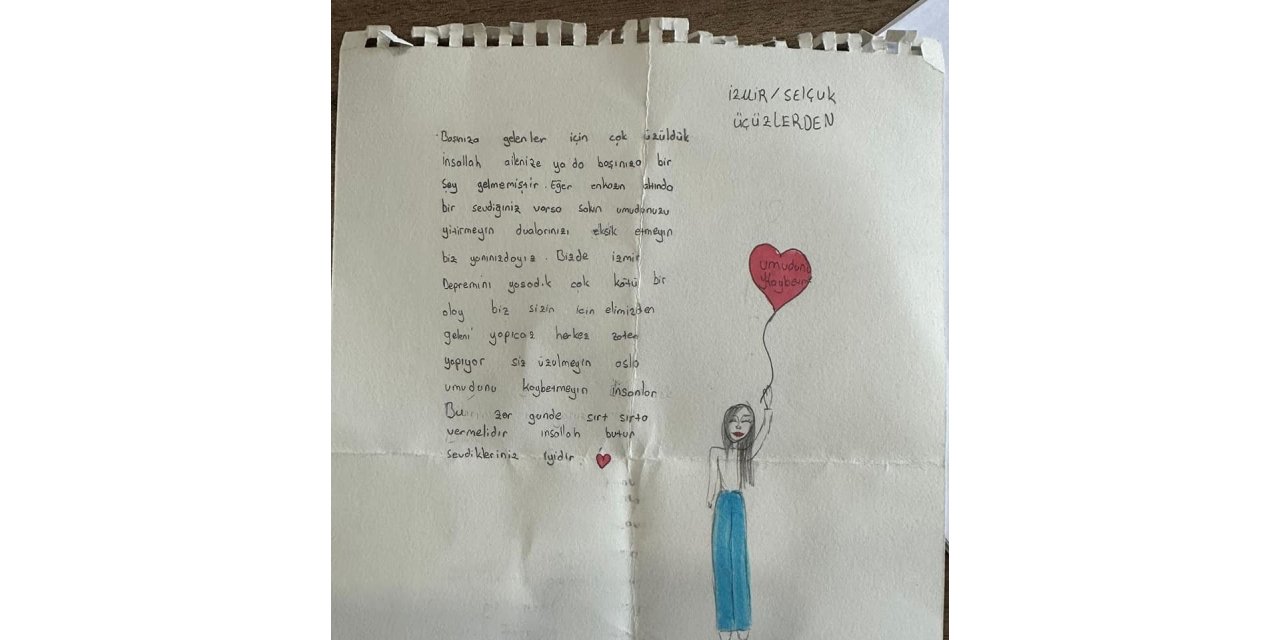 İZMİR/SELÇUK
ÜÇÜZLERDEN
Başınıza gelenler için çok üzüldük
İnşallah ailenize ya da başınıza bir
Şey gelmemiştir. Eğer enkazın altında
bir sevdiğiniz varsa sakın umudunuzu
yitirmeyin dualarınızı eksik etmeyin
biz yanınızdayız. Bizde izmir
Depremini yaşadık çok kötü bir
olay biz sizin için elimizden
geleni yapıcaz herkez zaten
yapıyor siz üzülmeyin asla
umudunu kaybetmeyin insanlar
Bu zor günde sırt sırta
vermelidir inşallah bütün
sevdikleriniz iyidir.
umudunu
Kaybetme